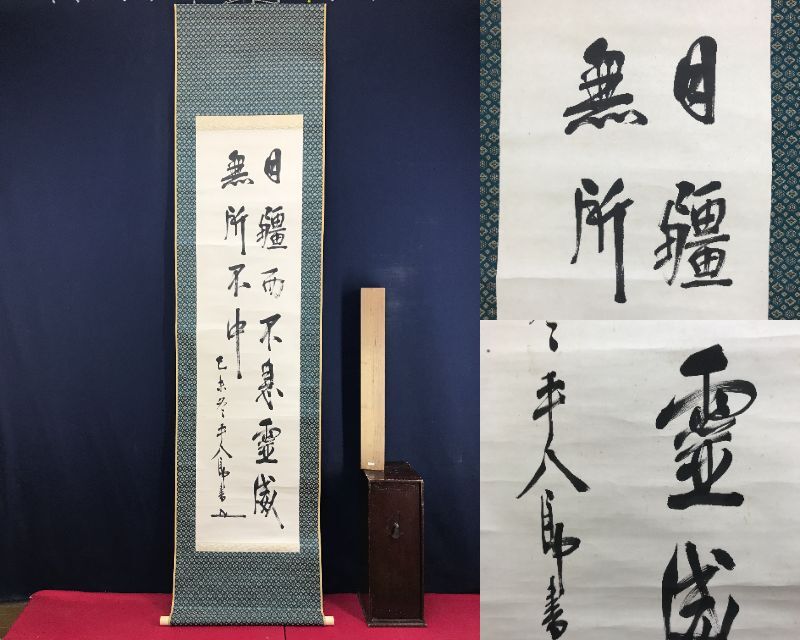 自疆而不息靈威
無所不中
己未冬平八郎書
自疆
無所
靈威
平八郎書